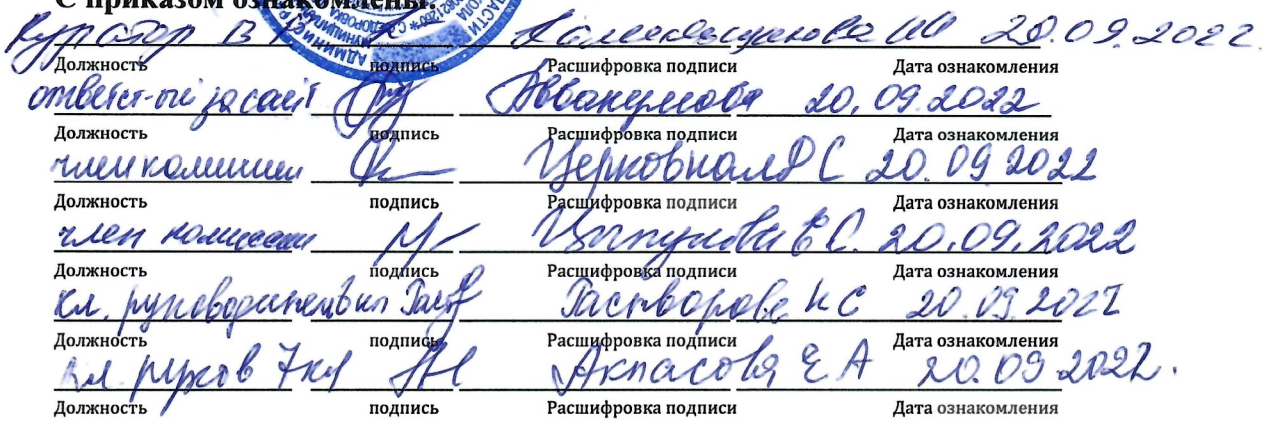 С приказом ознакомлены:
Куратор В 20.09.2022.
Должность подпись Расшифровка подписи Дата ознакомления
ответст-ый за сайт Аввакумова 20.09.2022
Должность подпись Расшифровка подписи Дата ознакомления
член комиссии Церковная С 20.09 2022
Должность подпись Расшифровка подписи Дата ознакомления
член комиссии Цыпунова Е С. 20.09.2022
Должность подпись Расшифровка подписи Дата ознакомления
кл. руководитель Растворова Н С 20.09.2022
Должность подпись Расшифровка подписи Дата ознакомления
кл. руков 7 кл Акпасова Е А 20.09 2022.
Должность подпись Расшифровка подписи Дата ознакомления